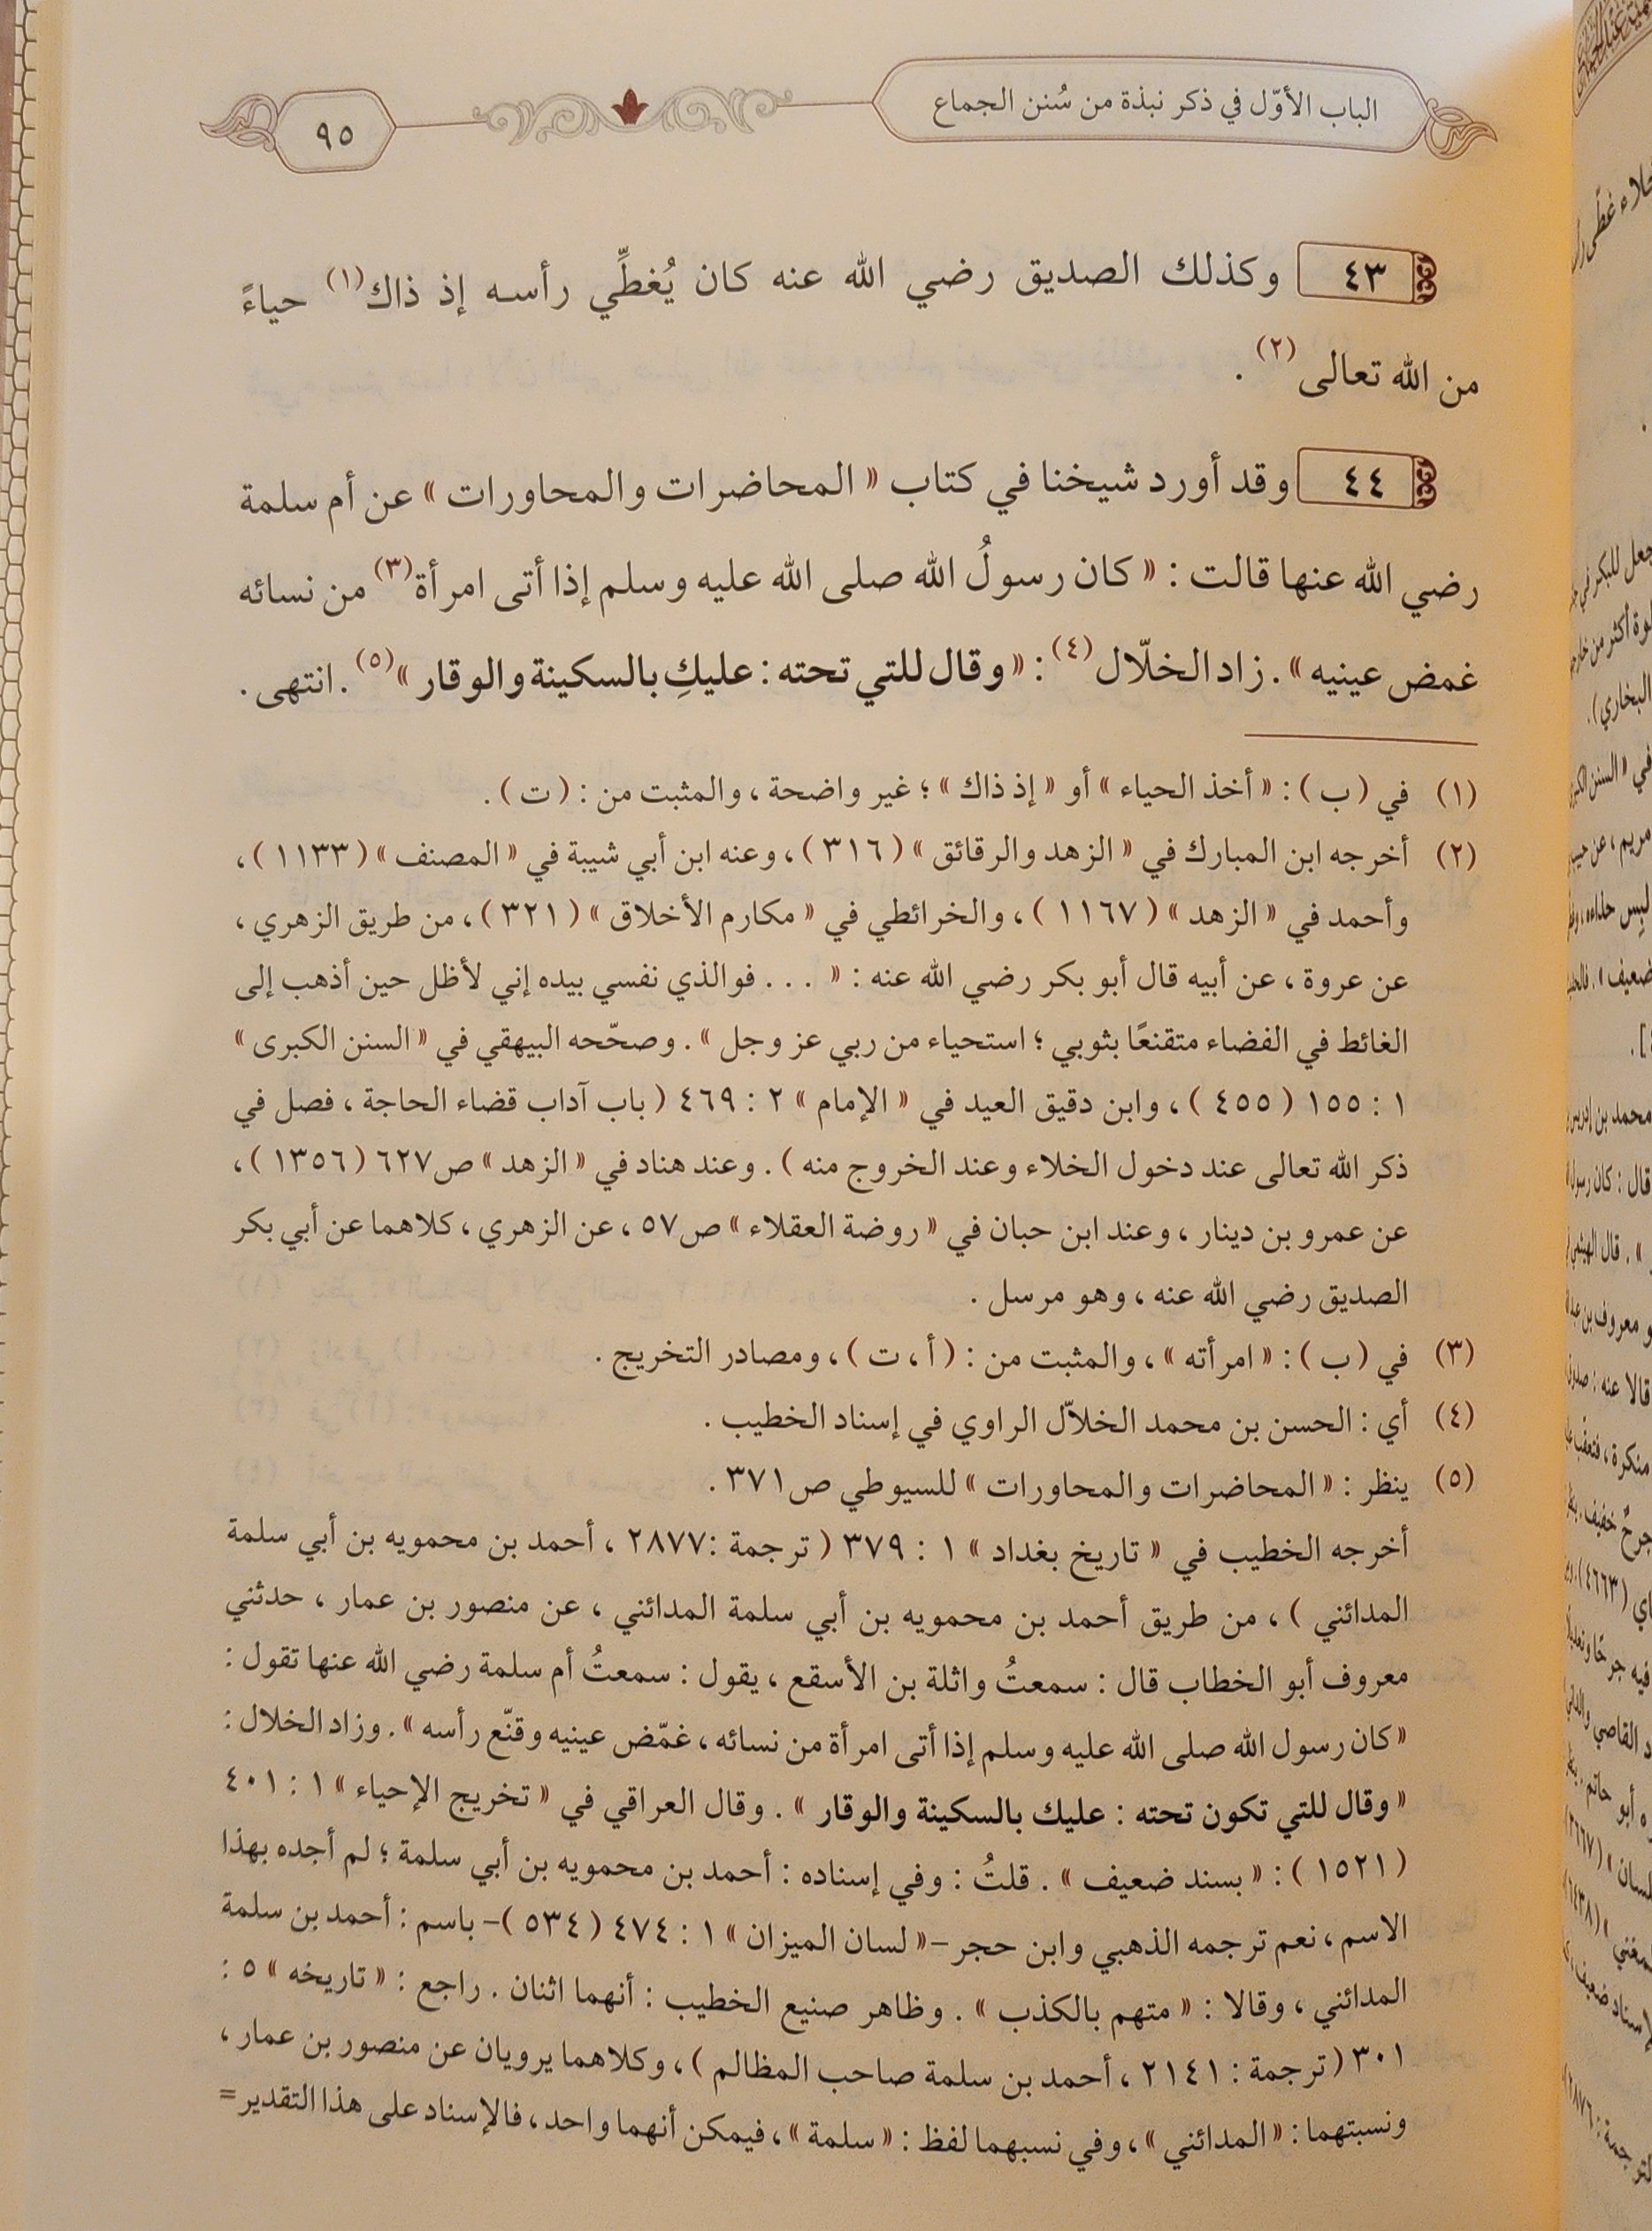 الباب الأوّل في ذكر نبذة من سُنن الجماع
٩٥
٤٣ وكذلك الصديق رضي الله عنه كان يُغطِّي رأسه إذ ذاك(١) حياءً
من الله تعالى(٢) .
٤٤ وقد أورد شيخنا في كتاب « المحاضرات والمحاورات » عن أم سلمة
رضي الله عنها قالت : « كان رسولُ الله صلى الله عليه وسلم إذا أتى امرأة(٣) من نسائه
غمض عينيه » . زاد الخلّال(٤) : « وقال للتي تحته : عليكِ بالسكينة والوقار »(٥) . انتهى .
(١) في ( ب ) : « أخذ الحياء » أو « إذ ذاك » ؛ غير واضحة ، والمثبت من : ( ت ) .
(٢) أخرجه ابن المبارك في « الزهد والرقائق » ( ٣١٦ ) ، وعنه ابن أبي شيبة في « المصنف » ( ١١٣٣ ) ،
وأحمد في « الزهد » ( ١١٦٧ ) ، والخرائطي في « مكارم الأخلاق » ( ٣٢١ ) ، من طريق الزهري ،
عن عروة ، عن أبيه قال أبو بكر رضي الله عنه : « . . . فوالذي نفسي بيده إني لأظل حين أذهب إلى
الغائط في الفضاء متقنعًا بثوبي ؛ استحياء من ربي عز وجل » . وصحّحه البيهقي في « السنن الكبرى »
١ : ١٥٥ ( ٤٥٥ ) ، وابن دقيق العيد في « الإمام » ٢ : ٤٦٩ ( باب آداب قضاء الحاجة ، فصل في
ذكر الله تعالى عند دخول الخلاء وعند الخروج منه ) . وعند هناد في « الزهد » ص٦٢٧ ( ١٣٥٦ ) ،
عن عمرو بن دينار ، وعند ابن حبان في « روضة العقلاء » ص٥٧ ، عن الزهري ، كلاهما عن أبي بكر
الصديق رضي الله عنه ، وهو مرسل .
(٣) في ( ب ) : « امرأته » ، والمثبت من : ( أ ، ت ) ، ومصادر التخريج .
(٤) أي : الحسن بن محمد الخلاّل الراوي في إسناد الخطيب .
(٥) ينظر : « المحاضرات والمحاورات » للسيوطي ص٣٧١ .
أخرجه الخطيب في « تاريخ بغداد » ١ : ٣٧٩ ( ترجمة :٢٨٧٧ ، أحمد بن محمويه بن أبي سلمة
المدائني ) ، من طريق أحمد بن محمويه بن أبي سلمة المدائني ، عن منصور بن عمار ، حدثني
معروف أبو الخطاب قال : سمعتُ واثلة بن الأسقع ، يقول : سمعتُ أم سلمة رضي الله عنها تقول :
« كان رسول الله صلى الله عليه وسلم إذا أتى امرأة من نسائه ، غمّض عينيه وقنّع رأسه » . وزاد الخلال :
« وقال للتي تكون تحته : عليك بالسكينة والوقار » . وقال العراقي في « تخريج الإحياء » ١ : ٤٠١
( ١٥٢١ ) : « بسند ضعيف » . قلتُ : وفي إسناده : أحمد بن محمويه بن أبي سلمة ؛ لم أجده بهذا
الاسم ، نعم ترجمه الذهبي وابن حجر –« لسان الميزان » ١ : ٤٧٤ ( ٥٣٤ )– باسم : أحمد بن سلمة
المدائني ، وقالا : « متهم بالكذب » . وظاهر صنيع الخطيب : أنهما اثنان . راجع : « تاريخه » ٥ :
٣٠١ ( ترجمة : ٢١٤١ ، أحمد بن سلمة صاحب المظالم ) ، وكلاهما يرويان عن منصور بن عمار ،
ونسبتهما : « المدائني » ، وفي نسبهما لفظ : « سلمة » ، فيمكن أنهما واحد ، فالإسناد على هذا التقدير =